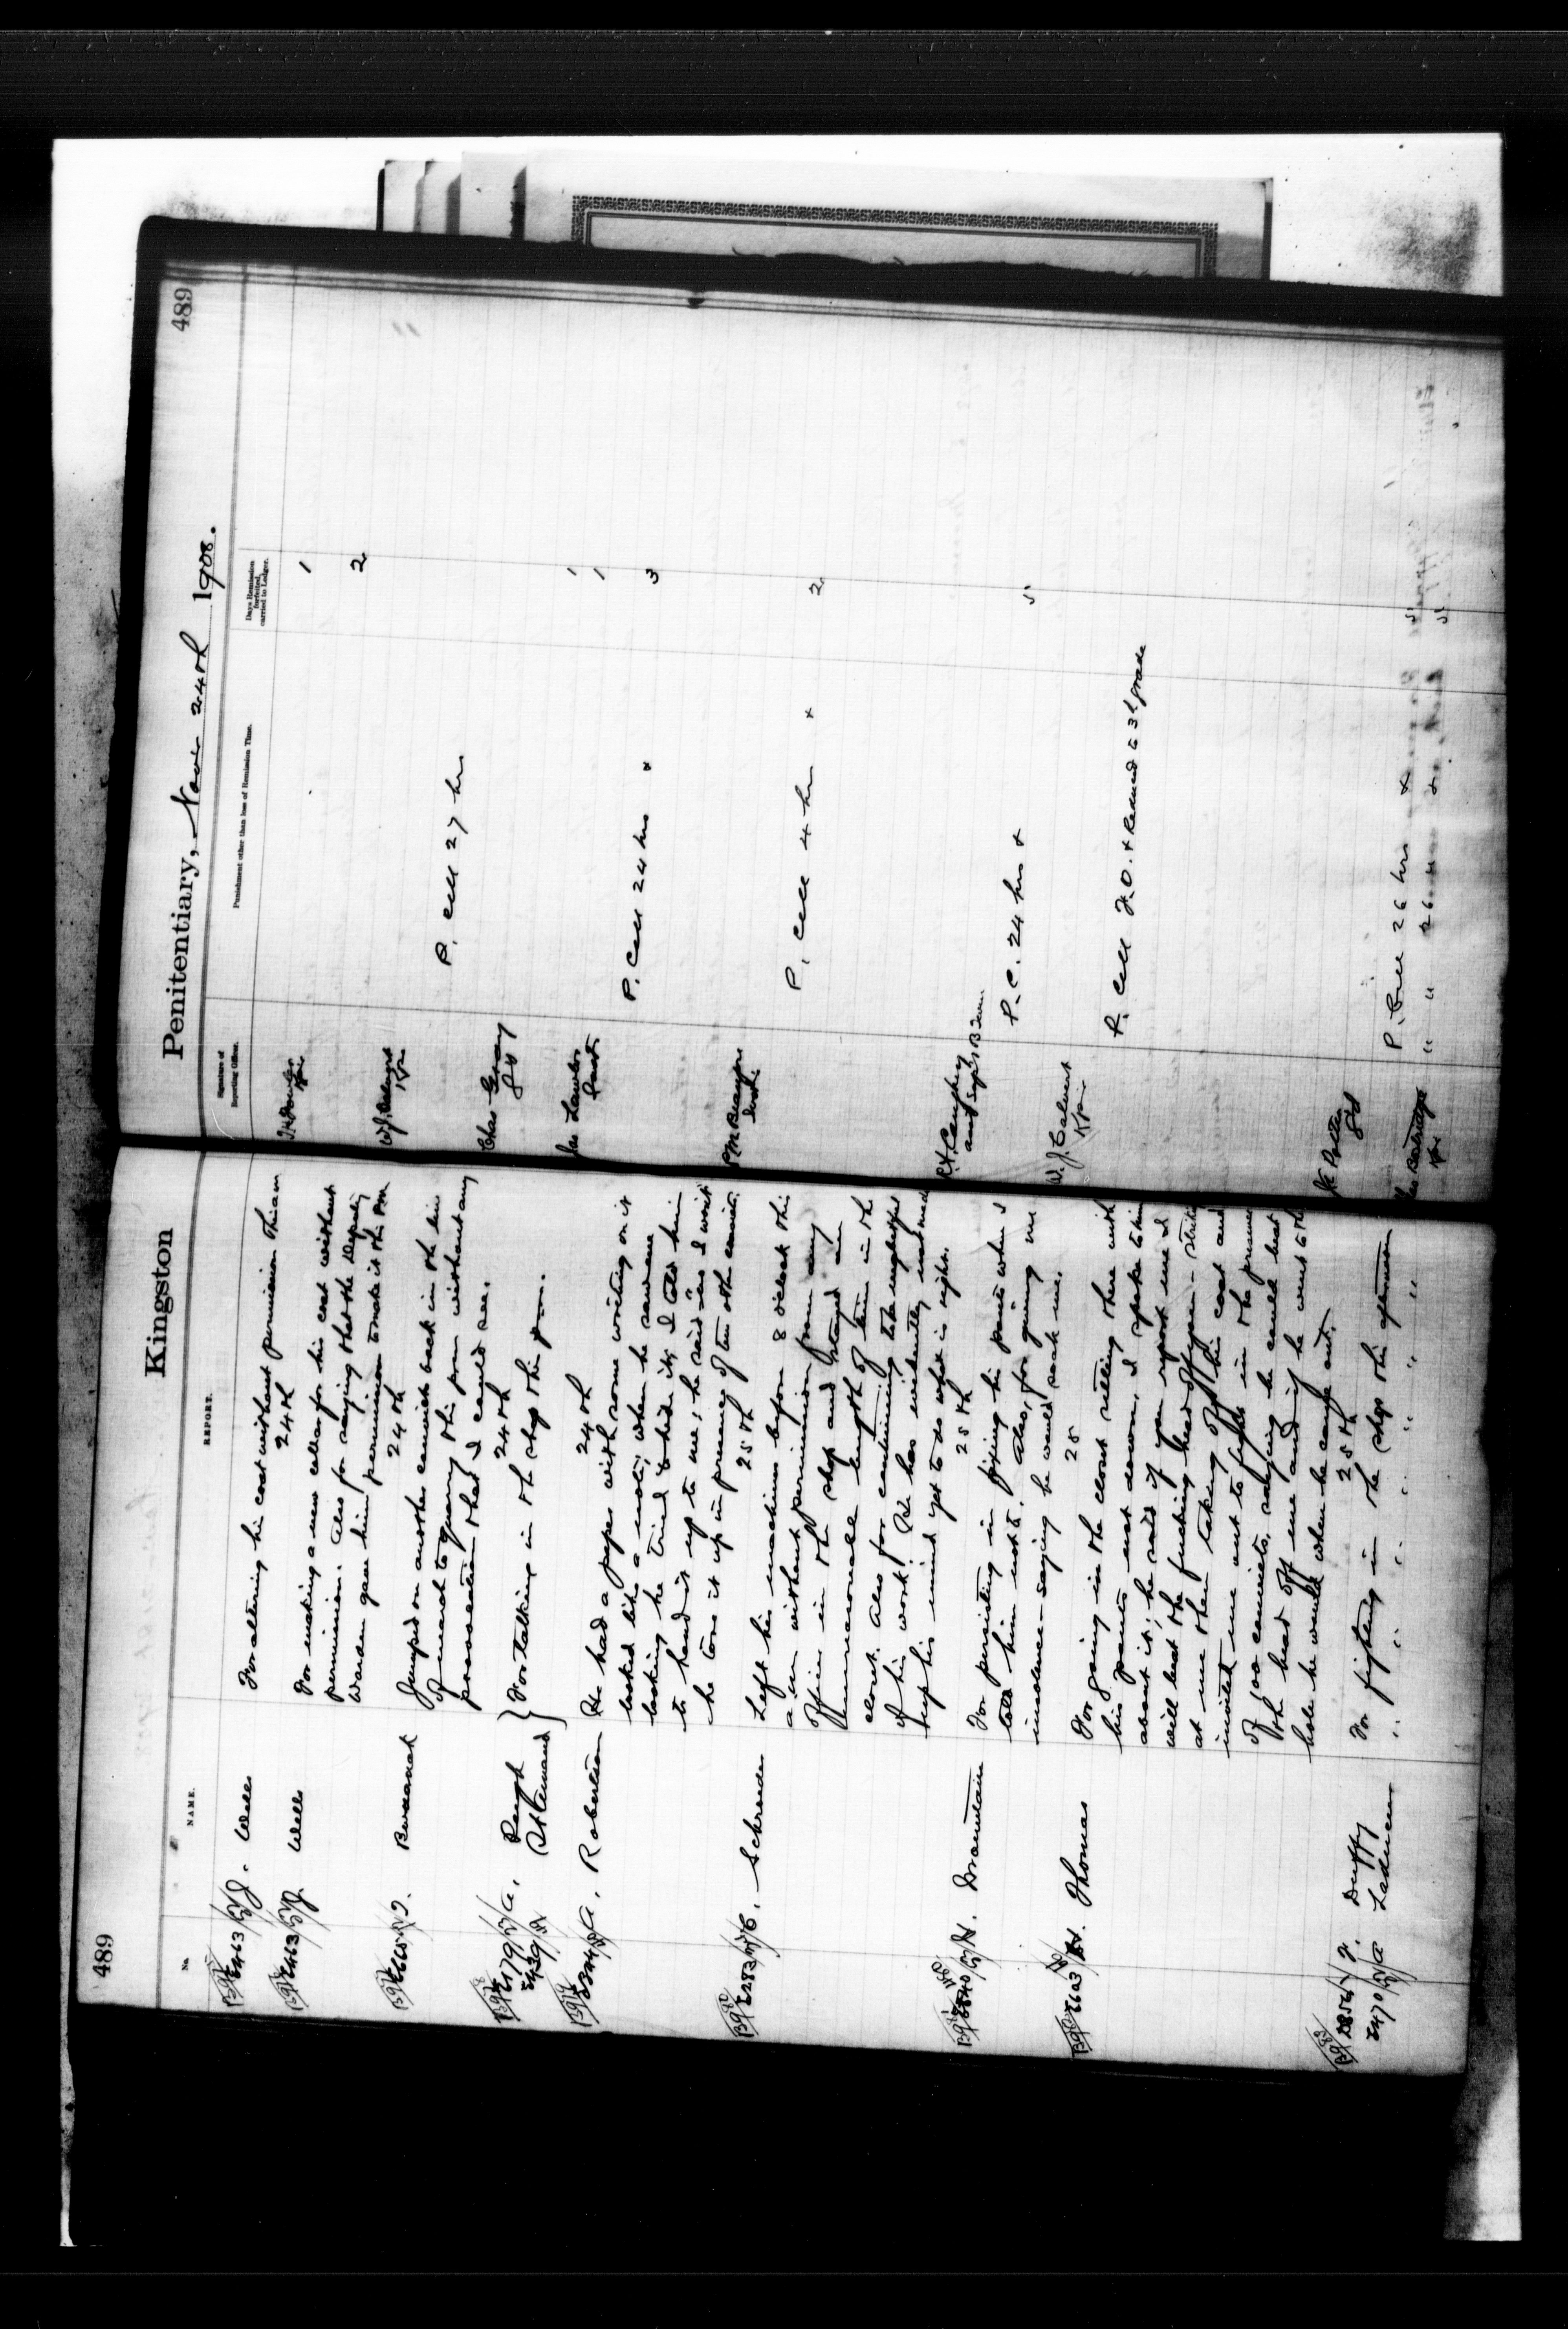 489
Kingston
Penitentiary, Novr 24th 1908.
489
No.
NAME.
REPORT.
Signature of Reporting Officer.
Punishment other than loss of Remission Time.
Days Remission forfeited, carried to Ledger.
E463 J. Wells
For altering his coat without permission this am
1
24th
E463 J. Wells
For making a new collar for his coat without
permission. Also for saying that the Deputy
Warden gave him permission to make it this pm
2
24th
Jumped on another convict's back in the line
of march to quarry this pm without any
provocation that I could see.
Chas Gray Gd
P. Cell 27 hrs
24th
E179 A. Pugh
E439 St Armand
For talking in the shop this pm.
Jas Lawlor Inst
1
1
24th
A. Robertson
He had a paper with some writing on it
looked like a note, when he saw me
looking he tried to hide it, I told him
to hand it up to me, he said "no I won't"
he tore it up in presence of two other convicts.
P M Beaupre Inst
P. Cell 24 hrs x
3
25th
E283 C. Schroeder
Left his machine before 8 o'clock this
a.m. without permission from any
Officer in the shop and stayed an
unreasonable length of time in the
closet. Also for continuing to neglect
of his work. He has evidently not made
up his mind yet to do what is right.
P. Cell 4 hrs x
2
25th
H. Drountain
For persisting in fixing his pants when I
told him not to. Also, for giving me
insolence - saying he would sock me.
W. J. Calvert Kpr
P. C. 24 hrs x
5
25
E603 H. Thomas
For going in the closet sitting there with
his pants not down, I spoke to him
about it; he said if you report me I
will beat the fucking head off you - struck
at me then taking off his coat and
invited me out to fight in the presence
of 100 convicts, saying he could beat
the head off me and if he went to the
hole he would when he came out.
Potter Gd
P. Cell F.O. & Reduced to 3d grade
25th
Duffy
E470 A Laducer
For fighting in the shop this afternoon
" " " " " " "
P. Cell 26 hrs x
5
" " 26 " x
5